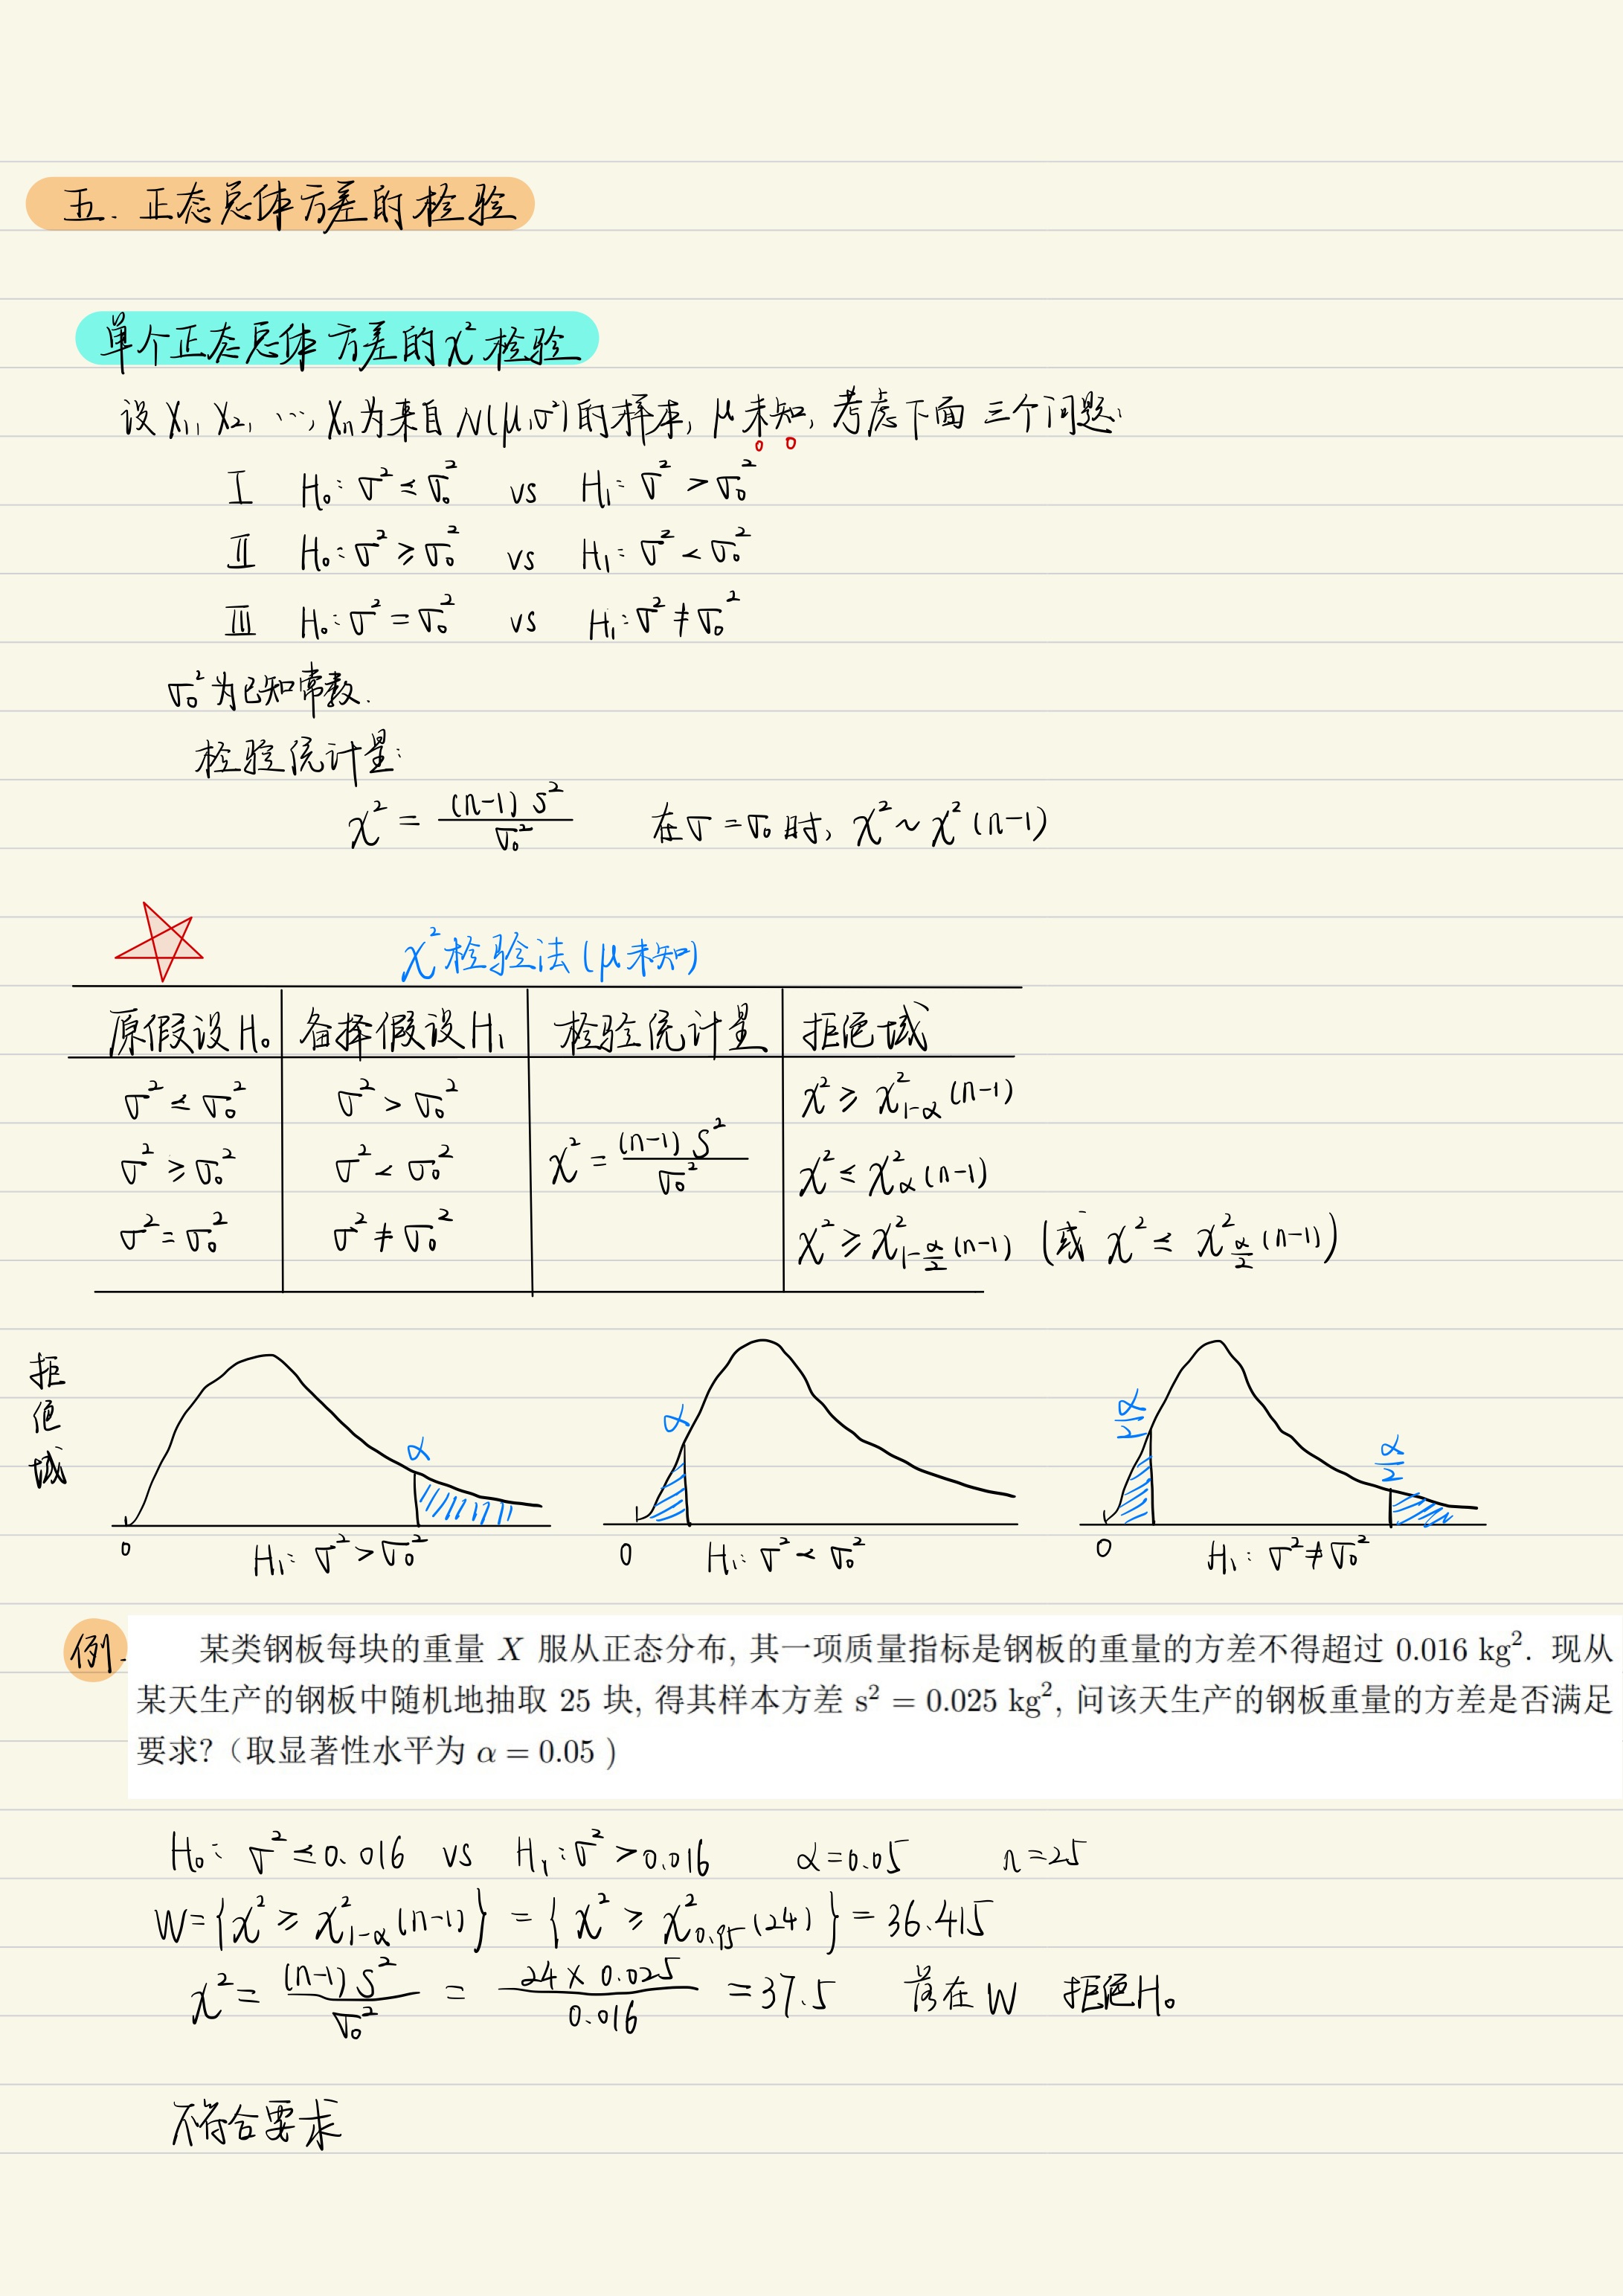 五. 正态总体方差的检验
单个正态总体方差的χ²检验
设 X₁, X₂, ⋯, Xₙ 为来自 N(μ,σ²) 的样本, μ 未知, 考虑下面三个问题:
Ⅰ H₀: σ² ≤ σ₀² vs H₁: σ² > σ₀²
Ⅱ H₀: σ² ≥ σ₀² vs H₁: σ² < σ₀²
Ⅲ H₀: σ² = σ₀² vs H₁: σ² ≠ σ₀²
σ₀² 为已知常数.
检验统计量:
χ² = (n-1)S²/σ₀² 在 σ = σ₀ 时, χ² ~ χ²(n-1)
χ²检验法 (μ未知)
原假设 H₀ 备择假设 H₁ 检验统计量 拒绝域
σ² ≤ σ₀² σ² > σ₀² χ² ≥ χ²₁₋α(n-1)
σ² ≥ σ₀² σ² < σ₀² χ² = (n-1)S²/σ₀² χ² ≤ χ²α(n-1)
σ² = σ₀² σ² ≠ σ₀² χ² ≥ χ²₁₋α/₂(n-1) (或 χ² ≤ χ²α/₂(n-1))
拒绝域
α α α/2 α/2
0 H₁: σ² > σ₀² 0 H₁: σ² < σ₀² 0 H₁: σ² ≠ σ₀²
例1. 某类钢板每块的重量 X 服从正态分布, 其一项质量指标是钢板的重量的方差不得超过 0.016 kg². 现从
某天生产的钢板中随机地抽取 25 块, 得其样本方差 s² = 0.025 kg², 问该天生产的钢板重量的方差是否满足
要求?（取显著性水平为 α = 0.05 )
H₀: σ² ≤ 0.016 vs H₁: σ² > 0.016 α = 0.05 n = 25
W = {χ² ≥ χ²₁₋α(n-1)} = {χ² ≥ χ²₀.₉₅(24)} = 36.415
χ² = (n-1)S²/σ₀² = 24 × 0.025/0.016 = 37.5 落在 W 拒绝H₀
不符合要求